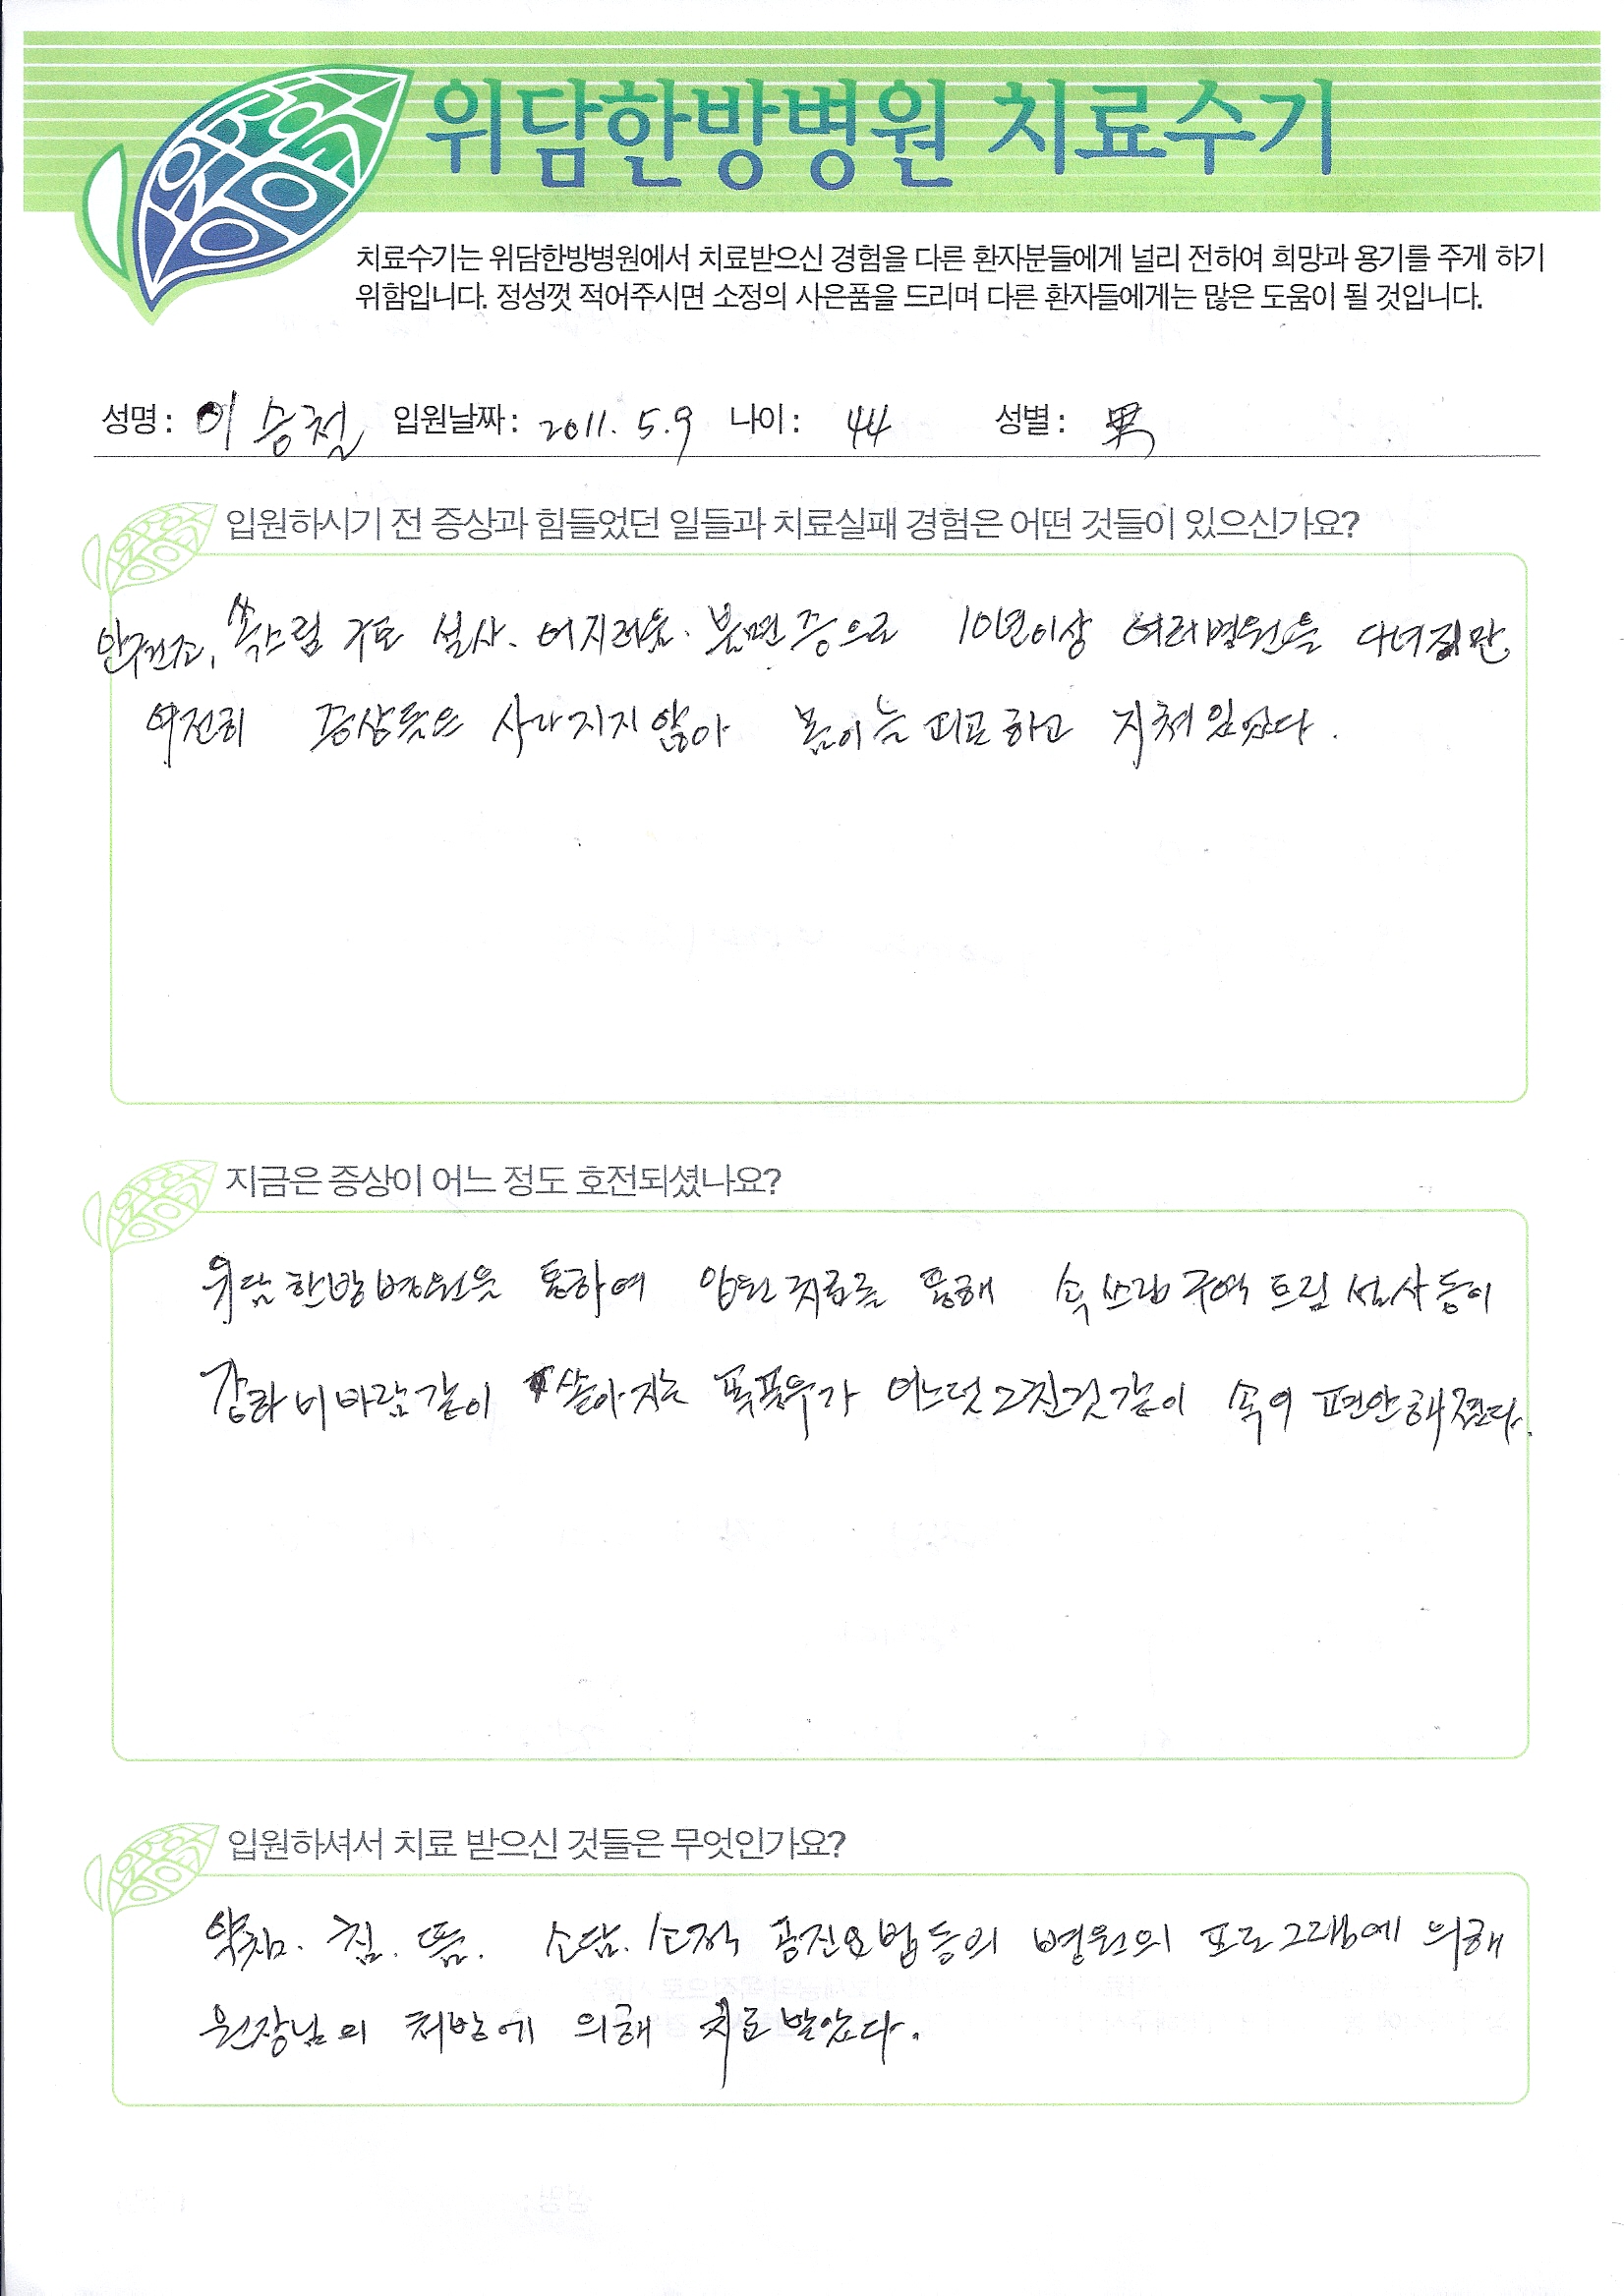 위담한방병원 치료수기
치료수기는 위담한방병원에서 치료받으신 경험을 다른 환자분들에게 널리 전하여 희망과 용기를 주게 하기
위함입니다. 정성껏 적어주시면 소정의 사은품을 드리며 다른 환자들에게는 많은 도움이 될 것입니다.
성명 : 이승철 입원날짜 : 2011. 5.9 나이 : 44 성별 : 男
입원하시기 전 증상과 힘들었던 일들과 치료실패 경험은 어떤 것들이 있으신가요?
안건조, 쏙쓰림 구토 설사. 어지러움. 불면증으로 10년이상 여러병원을 다녀지만
여전히 증상들은 사라지지 않아 몸이 늘 피곤하고 지쳐있었다.
지금은 증상이 어느 정도 호전되셨나요?
위담한방병원을 통하여 입원치료를 통해 속쓰림 구역 트림 설사 등이
강한 비바람같이 쏟아지는 폭풍우가 어느덧 그친것 같이 속이 편안해졌다.
입원하셔서 치료 받으신 것들은 무엇인가요?
약침. 침. 뜸. 소담. 소적 공진요법등의 병원의 프로그램에 의해
원장님의 처방에 의해 치료 받았다.